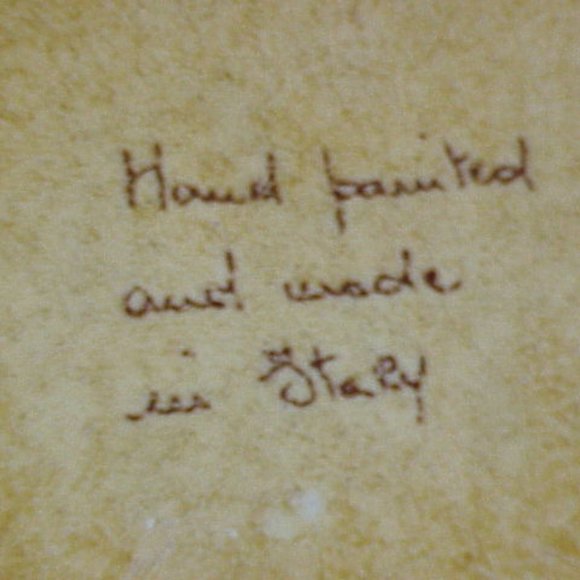 Hand painted
and made
in Italy